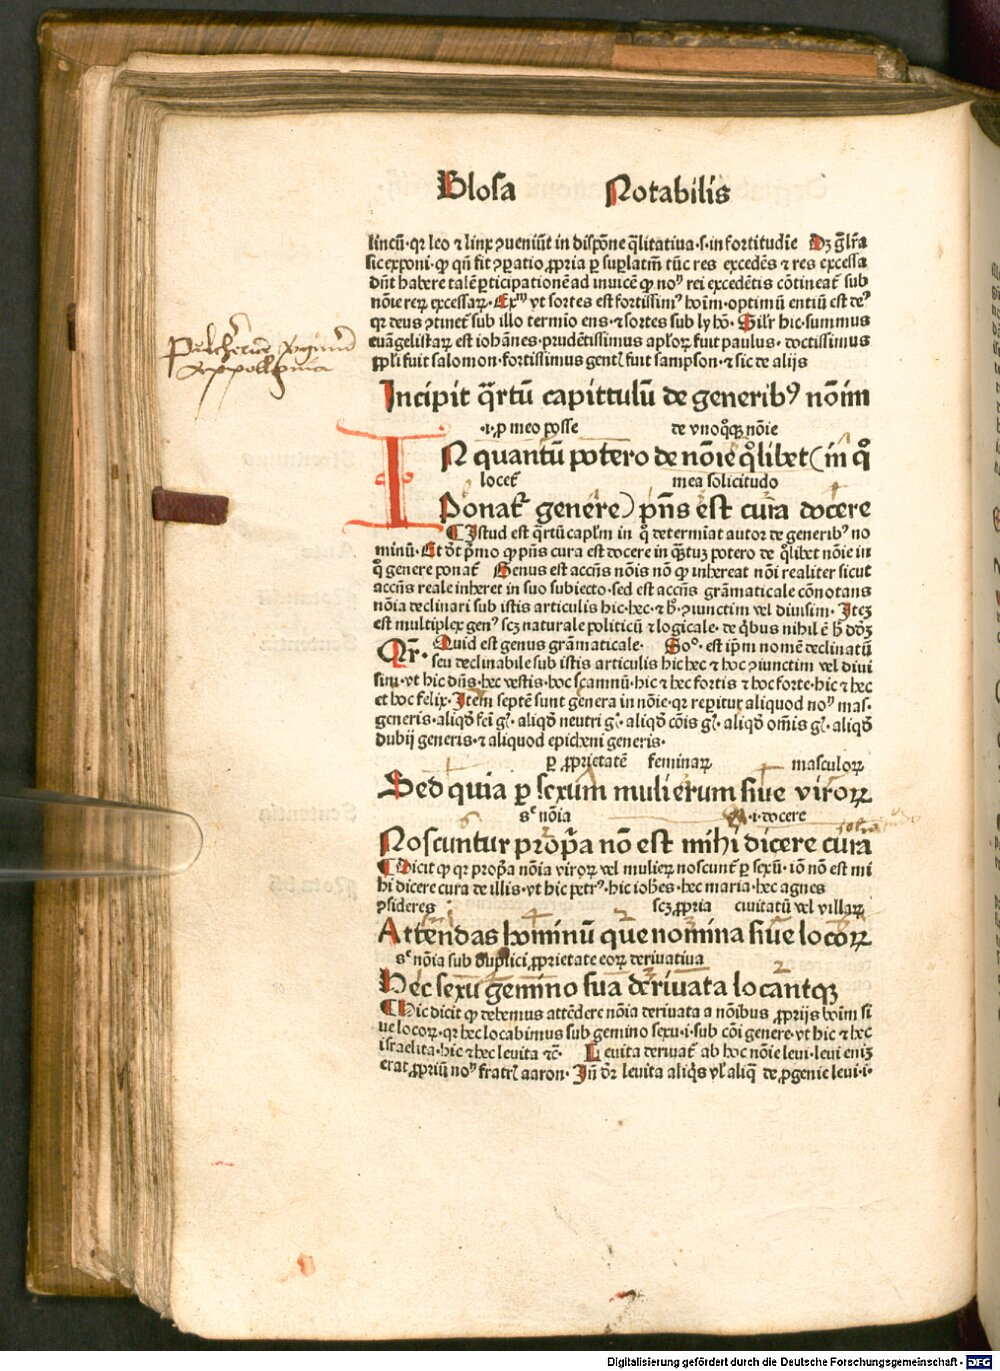 Glosa Notabilis
lincū·qr leo ⁊ linx ꝯueniūt in dispōne q̄litatiua·s·in fortitudīe Dꝫ gn̄lr̄a
sic exponi·ꝙ qn̄ fit ꝯparatio ꝓpria ꝑ suꝑlatiū tūc res excedēs ⁊ res excessa
dn̄t habere talē ꝑticipationē ad inuicē ꝙ noꝰ rei excedētis cōtineat̄ sub
nōie reꝝ excessaꝝ· Exᵐ vt sortes est fortissimꝰ hoīm·optimū entiū est deꝰ
qr deus ꝯtinet̄ sub illo termīo ens·⁊ sortes sub ly hō· Silr̄ hic·summus
euāgelistaꝝ est iohānes·prudētissimus apl̄oꝝ fuit paulus· doctissimus
ppl̄i fuit salomon·fortissimus gentꝭ fuit sampson·⁊ sic de alijs
Incipit q̄rtū capittulū de generibꝰ nōim
·i·ꝓ meo posse de vnoq̄qꝫ nōie
IN quantū potero de nōie qͦlibet (in qͦ
locet̄ mea solicitudo
Ponat̄ genere) pn̄s est cura docere
¶ Istud est q̄rtū caplm̄ in qͦ determīat autor de generibꝰ no
minū· Et dt̄ pͥmo ꝙ pn̄s cura est docere in q̄ꝫtuꝫ potero de qͦlibet nōie in
qͦ genere ponat̄ Genus est accn̄s nōis nō ꝙ inhereat nōi realiter sicut
accn̄s reale inheret in suo subiecto·sed est accn̄s grāmaticale cōnotans
nōia declinari sub istis articulis hic·hec·⁊ hͦ·ꝯiunctim vel diuisim· Iteꝫ
est multiplex genꝰ scꝫ naturale politicū ⁊ logicale· de qͥbus nihil ē hͦ dōꝫ
Qr̄· Quid est genus grāmaticale· Soᵒ· est ip̄m nomē declinatū
seu declinabile sub istis articulis hic hec ⁊ hoc ꝯiunctim vel diui
sim·vt hic dn̄s·hec vestis·hoc scamnū·hic ⁊ hec fortis ⁊ hoc forte·hic ⁊ hec
et hoc felix· Item septē sunt genera in nōie·qr reꝑitur aliquod noⁿ mas·
generis·aliqͦd fei gꝭ· aliqͦd neutri gꝭ·aliqͦd cōis gꝭ·aliqͦd oīis gꝭ·aliqͦd
dubij generis·⁊ aliquod epicheni generis·
ꝑ ꝓprietatē feminaꝝ masculoꝝ
Sed quia ꝑ sexum mulierum siue viroꝝ
sᶜ nōia ·i·docere
Noscuntur propͥa nō est mihi dicere cura
¶ Dicit ꝙ qr propͥa nōia viroꝝ vel mulieꝝ noscunt̄ ꝑ sexū·iō nō est mi
hi dicere cura de illis·vt hic petrꝰ·hic ioh̄es·hec maria·hec agnes
ꝯsideres scꝫ ꝓpria ciuitatū vel villaꝝ
Attendas hominū que nomina siue locoꝝ
sᶜ nōia sub duplici ꝓprietate eoꝝ deriuatiua
Hec sexu gemino sua deriuata locantqꝫ
¶ Hic dicit ꝙ debemus attēdere nōia deriuata a nōibus ꝓprijs hoīm si
ue locoꝝ·qr hec locabimus sub gemino sexu·i·sub cōi genere·vt hic ⁊ hec
israelita·hic ⁊ hec leuita ⁊c̄· Leuita deriuat̄ ab hoc nōie leui·leui eniꝫ
erat ꝓpriū noⁿ fratrꝭ aaron· Iñ dr̄ leuita aliqͥs vl̓ aliq̄ de ꝓgenie leui·i·
Digitalisierung gefördert durch die Deutsche Forschungsgemeinschaft · DFG